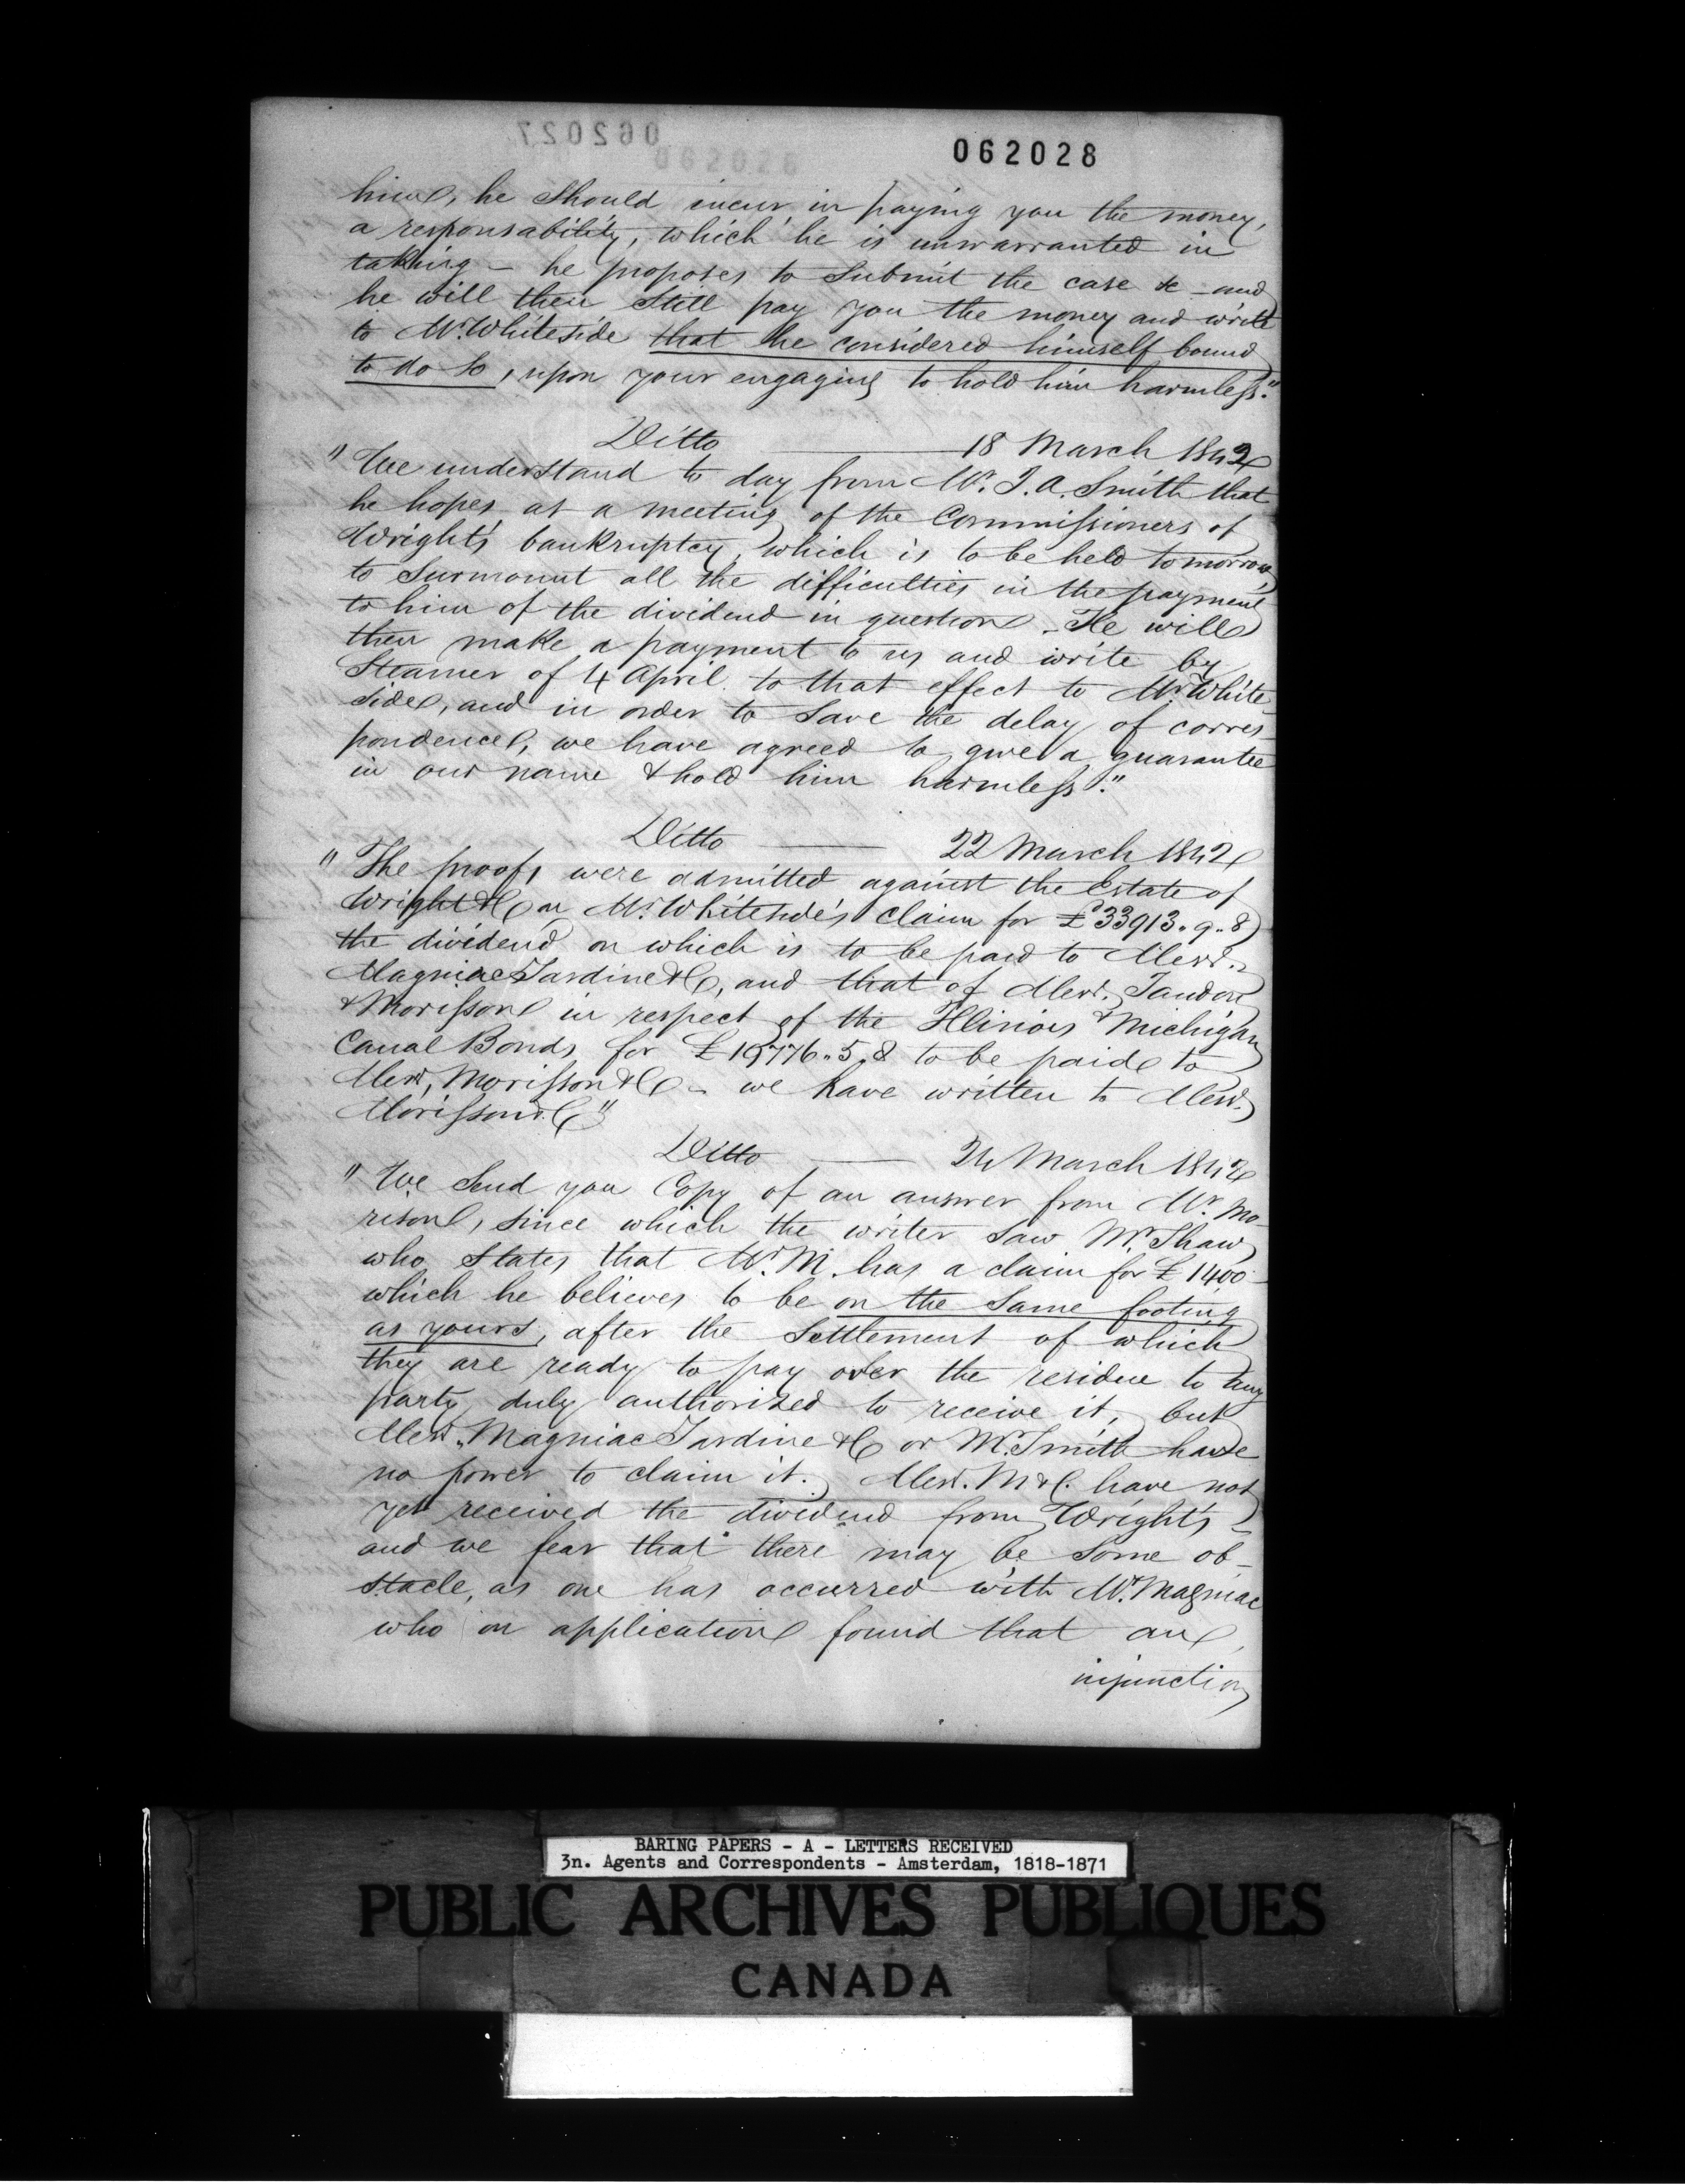 062027
062028
062028
him, he should incur in paying you the money,
a responsability, which he is unwarranted in
taking – he proposes to submit the case &c – and
he will then still pay you the money and write
to Mr. Whiteside that he considered himself bound
to do so, upon your engaging to hold him harmless."
Ditto — 18 March 1842
" We understand to day from Mr. J. A. Smith that
he hopes at a meeting of the Commissioners of
Wright's bankruptcy, which is to be held tomorrow,
to surmount all the difficulties in the payment
to him of the dividend in question. He will
then make a payment to us and write by
Steamer of 4 April to that effect to Mr. White
side, and in order to save the delay of corres
pondence, we have agreed to give a guarantee
in our name & hold him harmless."
Ditto — 22 March 1842
" The proofs were admitted against the Estate of
Wright & Co on Mr. Whiteside's claim for £33913.9.8
the dividend on which is to be paid to Messrs.
Magniac Jardine & Co, and that of Messrs. Jaudon
& Morisson in respect of the Illinois & Michigan
Canal Bonds for £19776.5.8 to be paid to
Messrs. Morisson & Co – we have written to Messrs.
Morisson & Co"
Ditto — 24 March 1842
" We send you Copy of an answer from Mr. Mo-
rison, since which the writer saw Mr. Shaw
who states that Mr. M. has a claim for £1400 –
which he believes to be on the same footing
as yours, after the settlement of which
they are ready to pay over the residue to any
party duly authorized to receive it, but
Messrs. Magniac Jardine & Co or Mr. Smith have
no power to claim it. Messrs. M & C. have not
yet received the dividend from Wright's –
and we fear that there may be some ob-
stacle, as one has occurred with Mr. Magniac
who on application found that an
injunction
BARING PAPERS - A - LETTERS RECEIVED
3n. Agents and Correspondents - Amsterdam, 1818-1871
PUBLIC ARCHIVES PUBLIQUES
CANADA